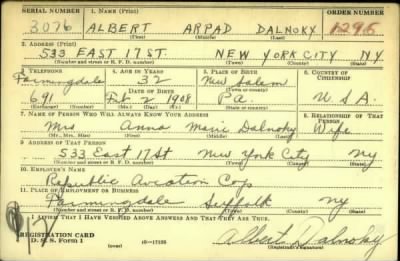 SERIAL NUMBER 1. NAME (Print) ORDER NUMBER
3076 ALBERT ARPAD DALNOKY 1295
(First) (Middle) (Last)
2. ADDRESS (Print)
533 EAST 17 ST. NEW YORK CITY NY.
(Number and street or R. F. D. number) (Town) (County) (State)
3. TELEPHONE 4. AGE IN YEARS 5. PLACE OF BIRTH 6. COUNTRY OF CITIZENSHIP
Farmingdale 32 New Salem
DATE OF BIRTH (Town or county)
691 Feb 2 1908 Pa. U. S. A.
(Exchange) (Number) (Mo.) (Day) (Yr.) (State or country)
7. NAME OF PERSON WHO WILL ALWAYS KNOW YOUR ADDRESS 8. RELATIONSHIP OF THAT PERSON
Mrs Anna Marie Dalnoky Wife
(Mr., Mrs., Miss) (First) (Middle) (Last)
9. ADDRESS OF THAT PERSON
533 East 17 St New York City NY
(Number and street or R. F. D. number) (Town) (County) (State)
10. EMPLOYER'S NAME
Republic Aviation Corp
11. PLACE OF EMPLOYMENT OR BUSINESS
Farmingdale Suffolk NY
(Number and street or R. F. D. number) (Town) (County) (State)
I AFFIRM THAT I HAVE VERIFIED ABOVE ANSWERS AND THAT THEY ARE TRUE.
REGISTRATION CARD
D. S. S. Form 1 (over) 16—17105 Albert Dalnoky
(Registrant's signature)